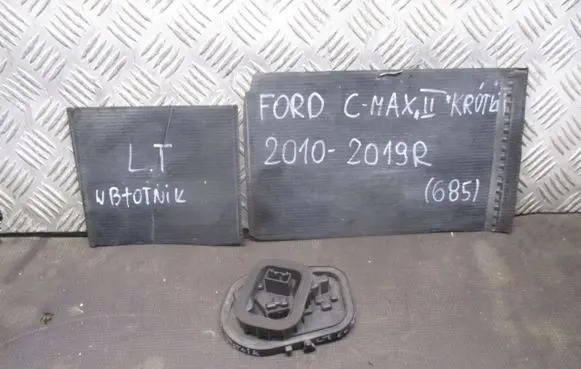 L.T
W BŁOTNIK
FORD C-MAX II "KRÓTKI
2010-2019R
(685)
LT